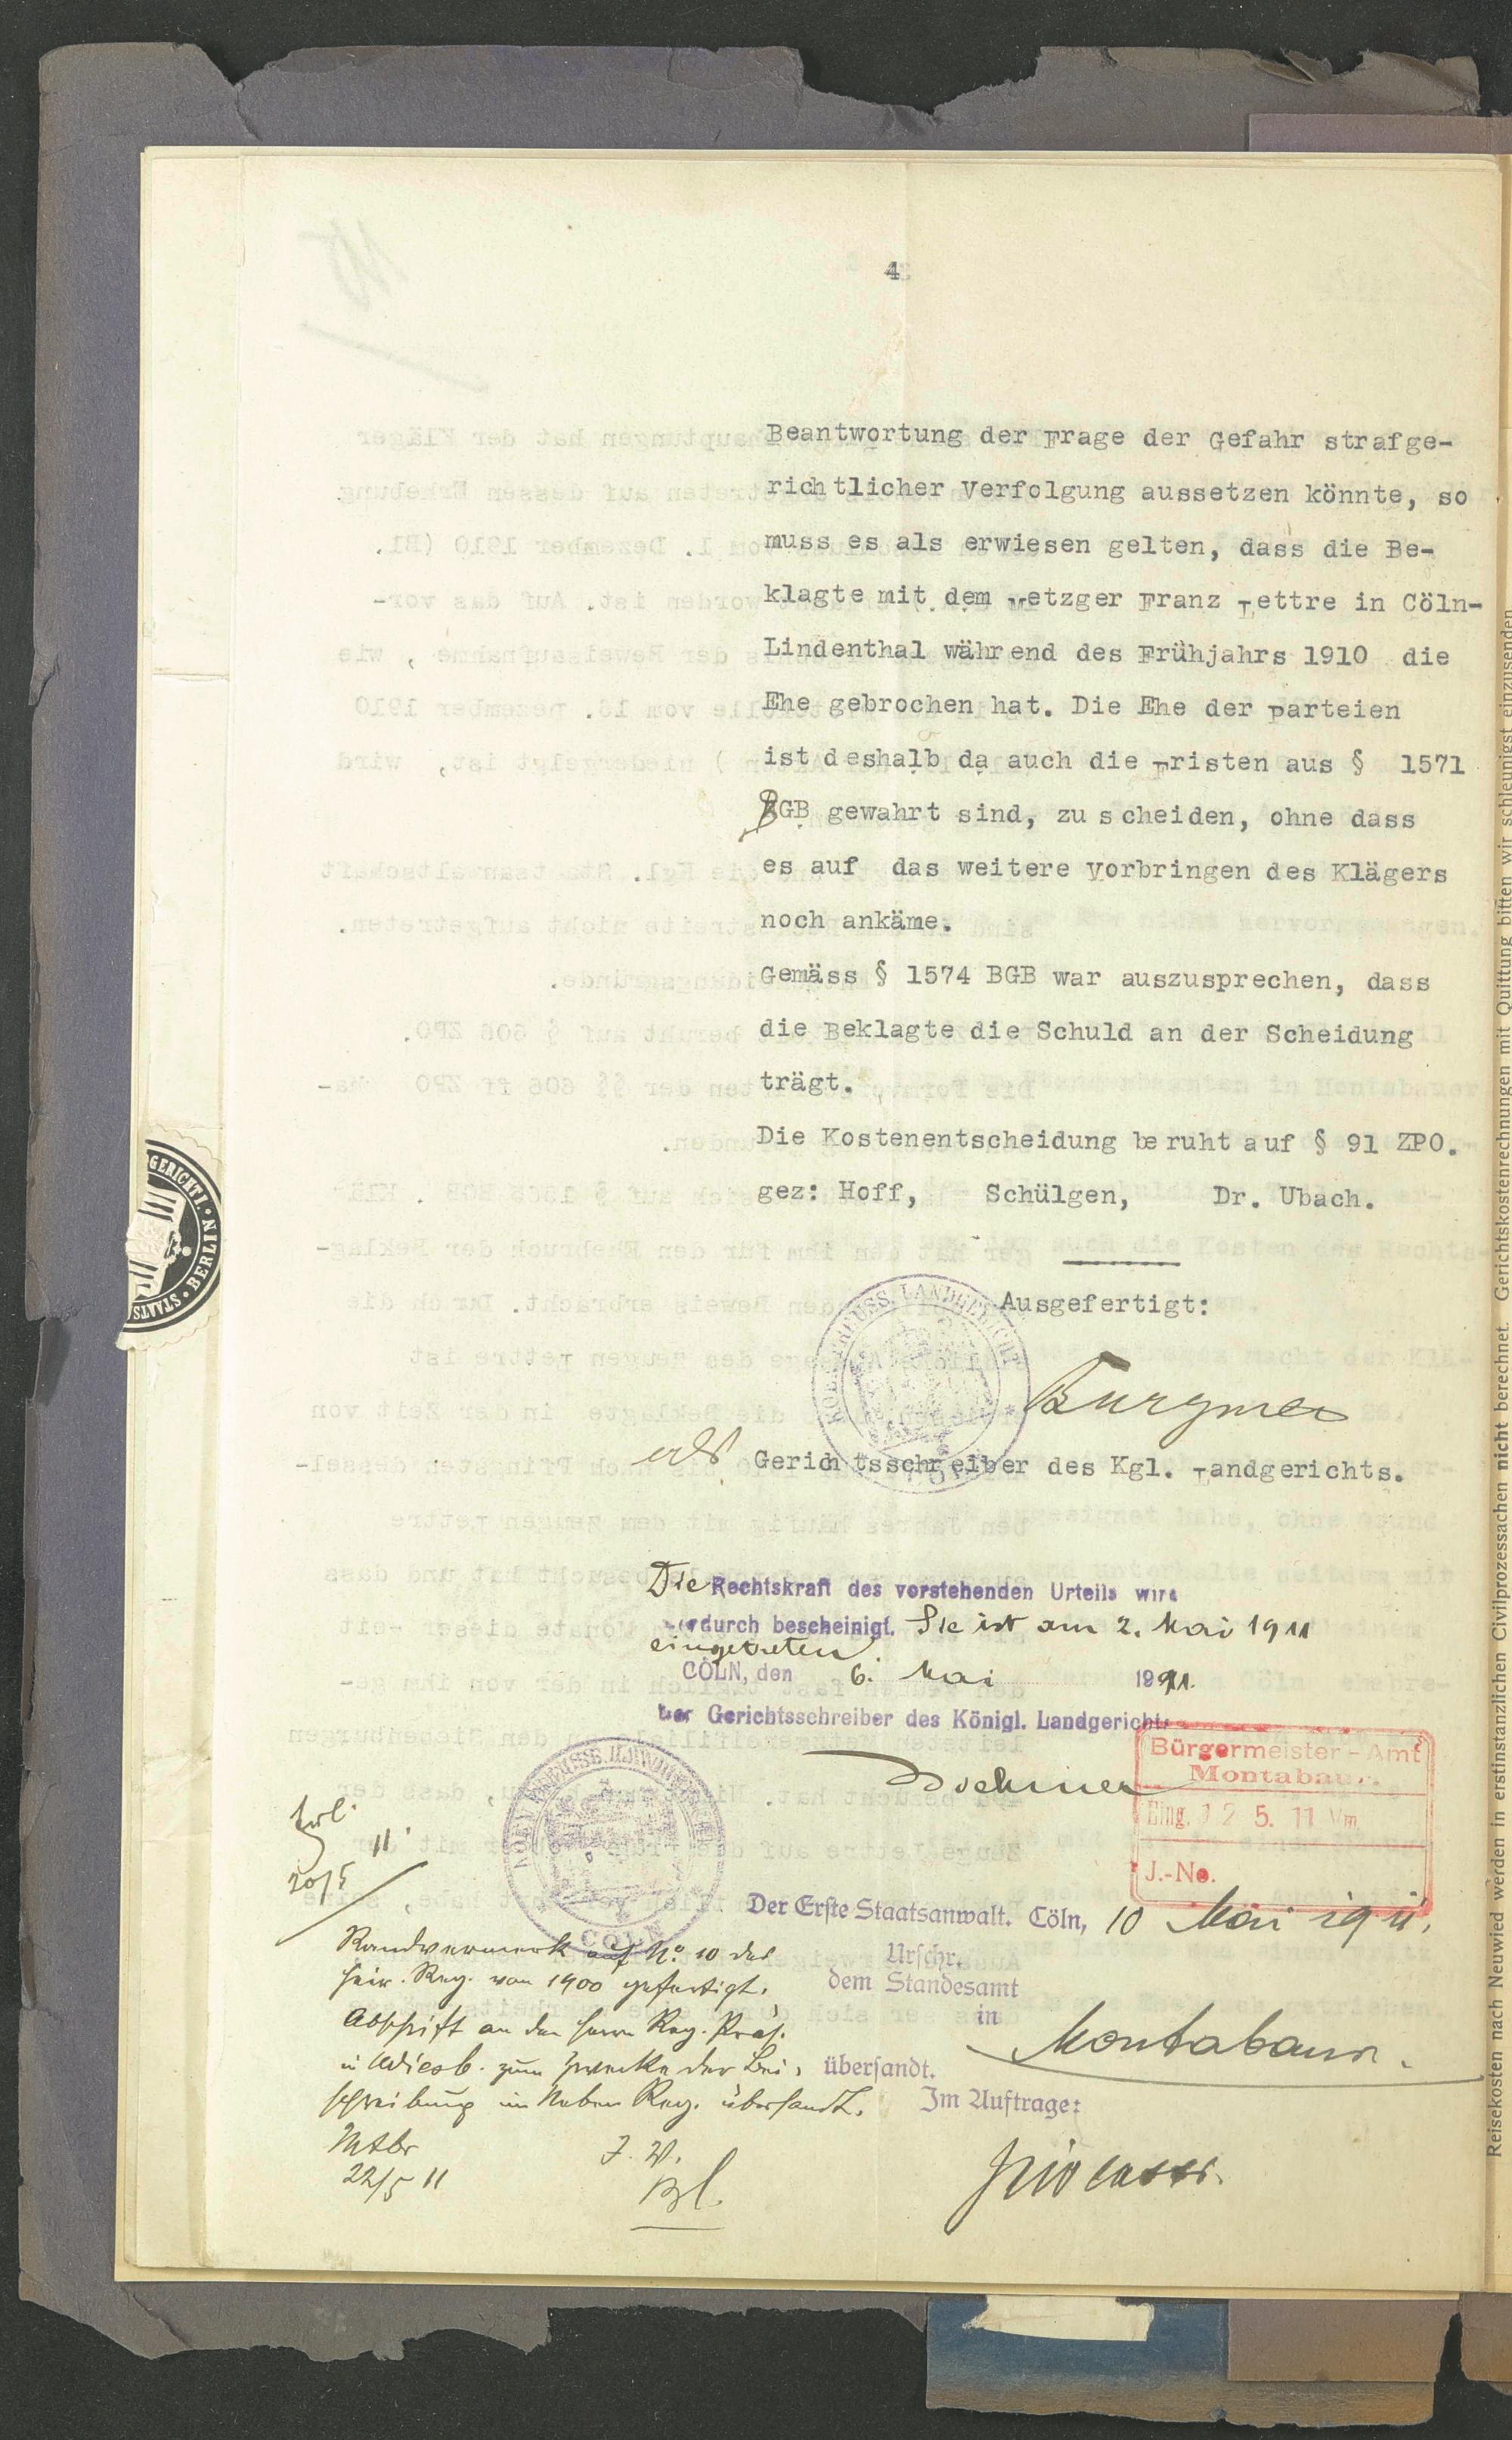 4
Beantwortung der Frage der Gefahr strafge-
richtlicher Verfolgung aussetzen könnte, so
muss es als erwiesen gelten, dass die Be-
klagte mit dem Metzger Franz Lettre in Cöln-
Lindenthal während des Frühjahrs 1910 die
Ehe gebrochen hat. Die Ehe der Parteien
ist deshalb da auch die Fristen aus § 1571
BGB gewahrt sind, zu scheiden, ohne dass
es auf das weitere Vorbringen des Klägers
noch ankäme.
Gemäss § 1574 BGB war auszusprechen, dass
die Beklagte die Schuld an der Scheidung
trägt.
Die Kostenentscheidung beruht auf § 91 ZPO.
gez: Hoff, Schülgen, Dr. Ubach.
Ausgefertigt:
als Gerichtsschreiber des Kgl. Landgerichts.
Die Rechtskraft des vorstehenden Urteils wird
hierdurch bescheinigt. Sie ist am 2. Mai 1911
eingetreten.
CÖLN, den 6. Mai 1911.
Der Gerichtsschreiber des Königl. Landgerichts
Bürgermeister-Amt
Montabaur
Eing. 12 5. 11 Vm
J.-No.
Der Erste Staatsanwalt. Cöln, 10 Mai 1911.
Urschr.
dem Standesamt
in
Montabaur.
übersandt.
Im Auftrage:
20/5 11
Randvermerk auf No. 10 des
Heir. Reg. von 1900 gefertigt.
Abschrift an den Herrn Reg. Präs.
in Wiesb. zum Zwecke der Bei-
schreibung im Neben Reg. übersandt.
Mtbr
22/5 11
J. V.
KÖNIGL. PREUSS. LANDGERICHT
CÖLN
GERICHTL. BERLIN
STAATS
Reisekosten nach Neuwied werden in erstinstanzlichen Civilprozessachen nicht berechnet. Gerichtskostenrechnungen mit Quittung bitten wir schleunigst einzusenden